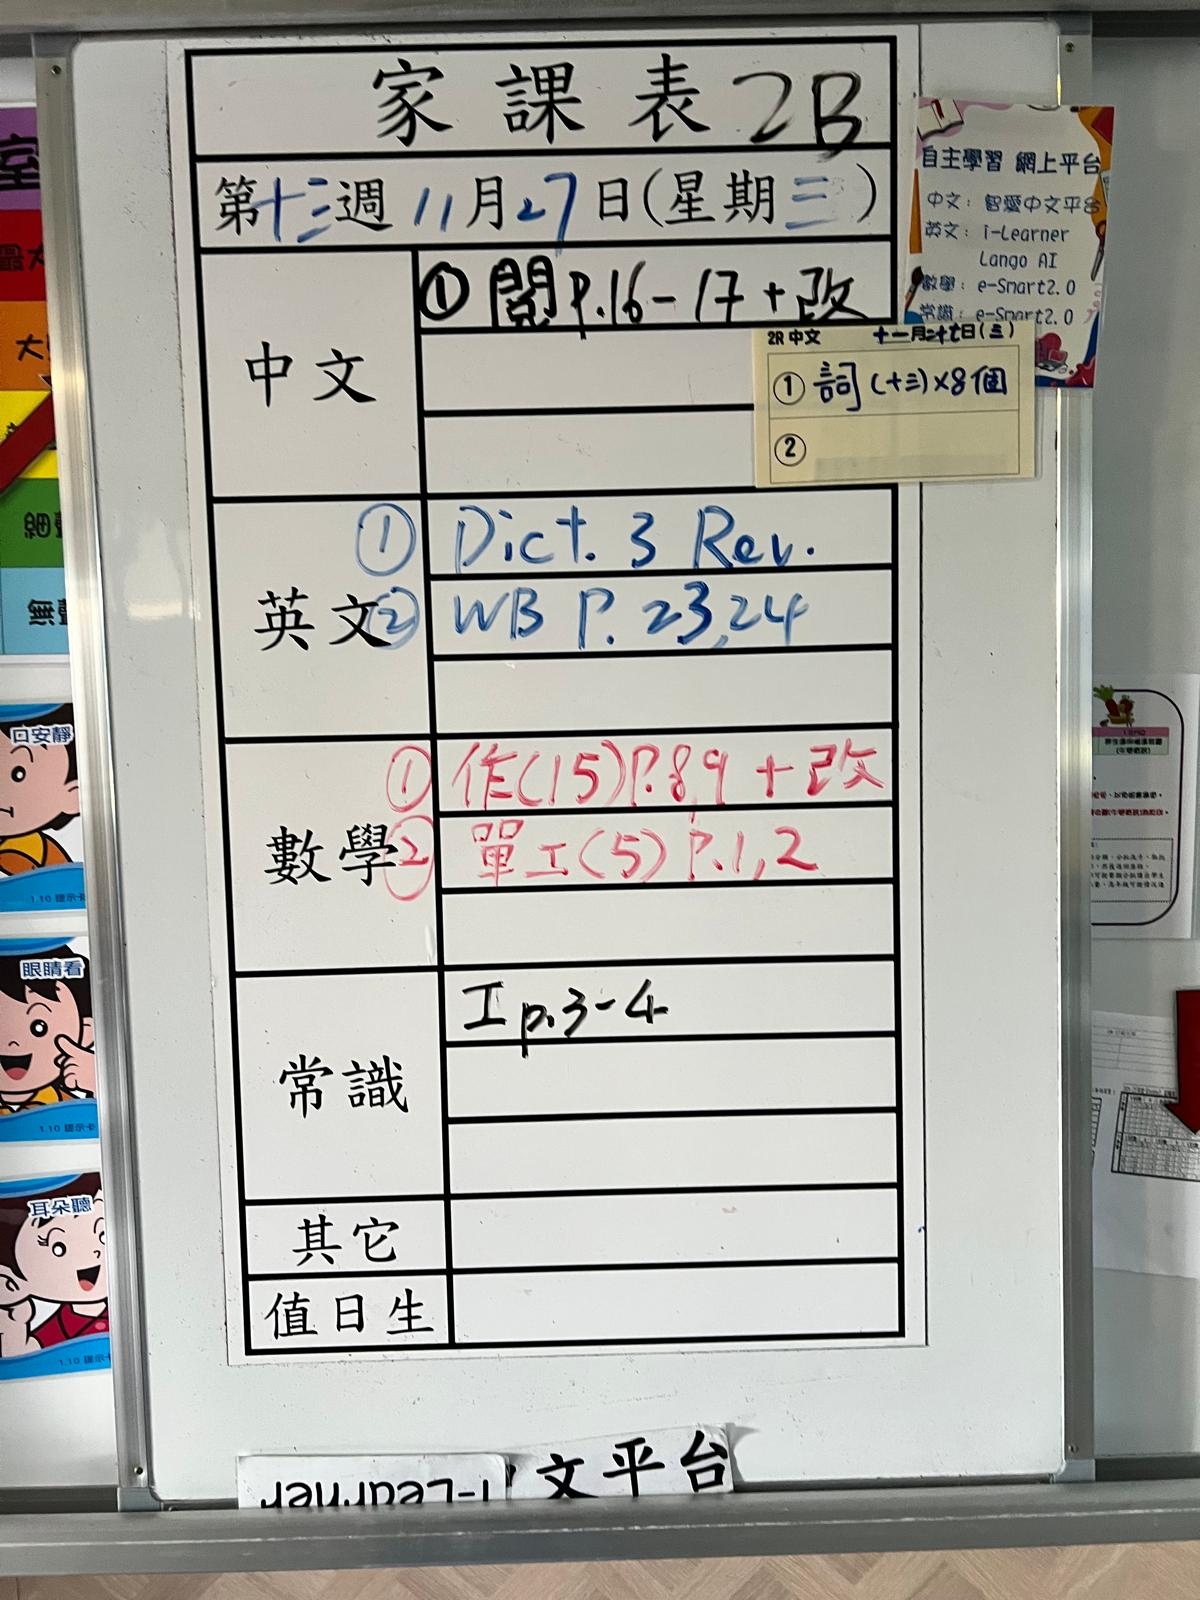 家課表 2B
第十三週 11月27日(星期三)
中文
① 閱 P.16-17 + 改
2R 中文 十一月二十七日(三)
① 詞(十三)×8個
②
英文
① Dict. 3 Rev.
② WB P. 23,24
數學
① 作(15)P.8,9 + 改
② 單工(5) P.1,2
常識
工 p.3-4
其它
值日生
自主學習 網上平台
中文：智愛中文平台
英文：i-Learner
Lango AI
數學：e-Smart2.0
常識：e-Smart2.0
口安靜
1.10 提示卡
眼睛看
1.10 提示卡
耳朵聽
1.10 提示卡
室
最大
大
細聲
無聲
i-Learner
文平台